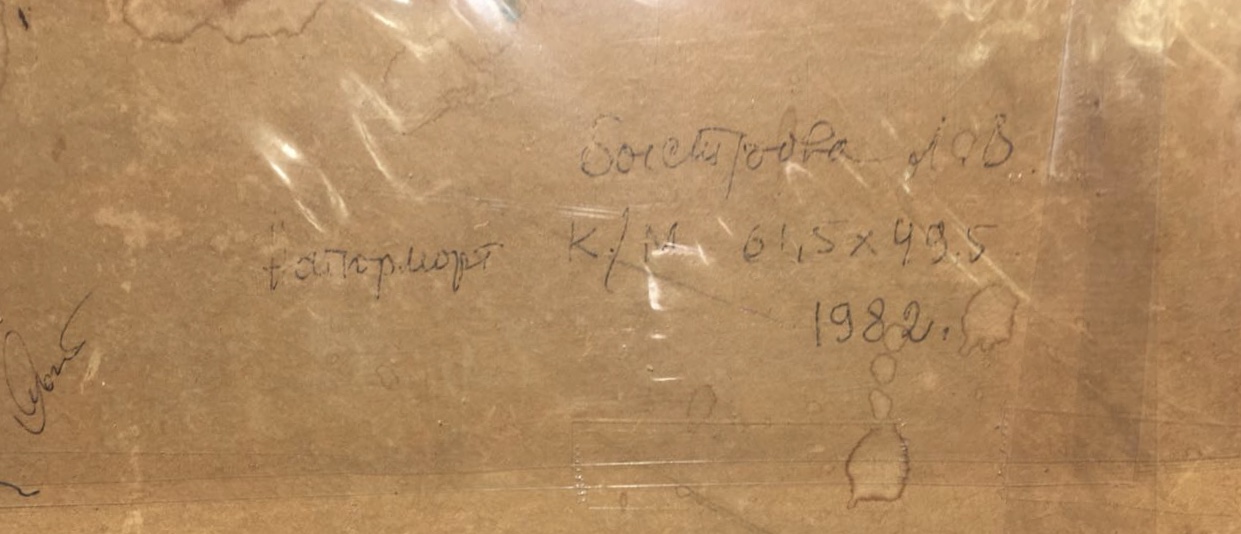 Быстрова Л.В
Натюрморт К/М 61,5х49.5
1982.